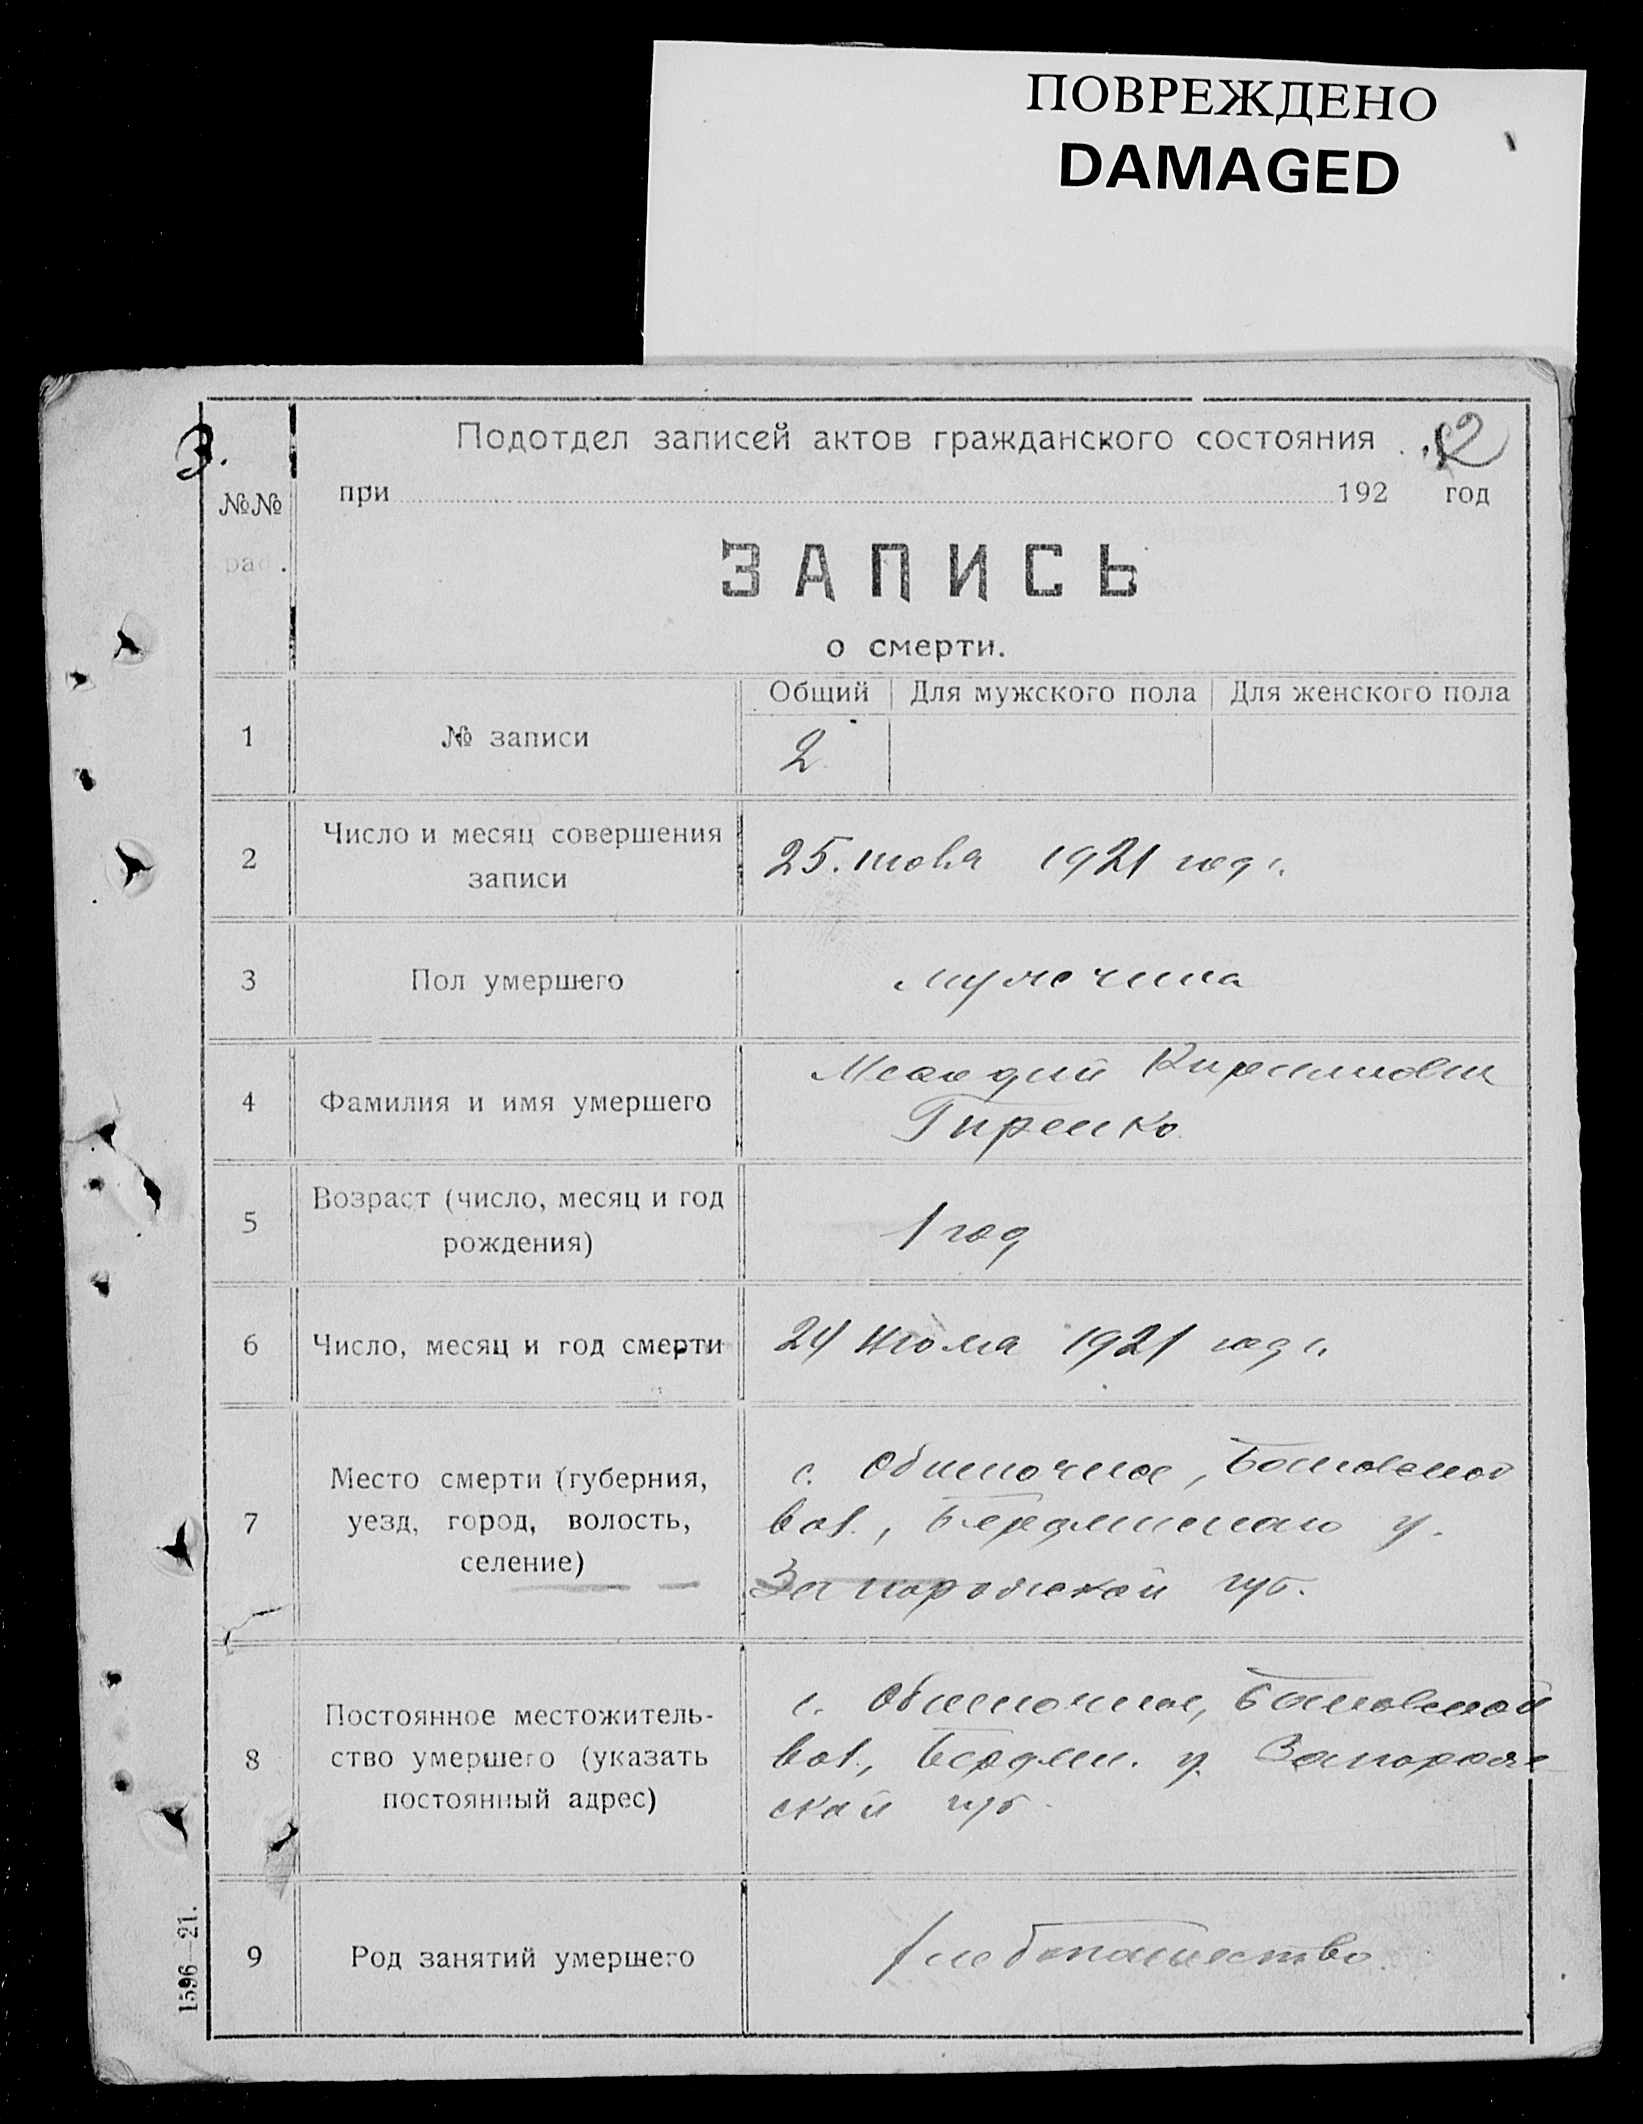 ПОВРЕЖДЕНО
DAMAGED
3.
Подотдел записей актов гражданского состояния
2
№№
при 192 год
ЗАПИСЬ
о смерти.
Общий Для мужского пола Для женского пола
1 № записи 2
2 Число и месяц совершения
записи
25. июля 1921 года.
3 Пол умершего мужчина
4 Фамилия и имя умершего
Кириллович
Гиренко
5 Возраст (число, месяц и год
рождения)
1 год
6 Число, месяц и год смерти 24 июля 1921 года.
7 Место смерти (губерния,
уезд, город, волость,
селение)
с. Обиточное,
вол., Бердянского у.
Запорожской губ.
8 Постоянное местожитель-
ство умершего (указать
постоянный адрес)
с. Обиточное,
вол., Бердян. у. Запорож
ской губ.
9 Род занятий умершего хлебопашество.
1596—21.